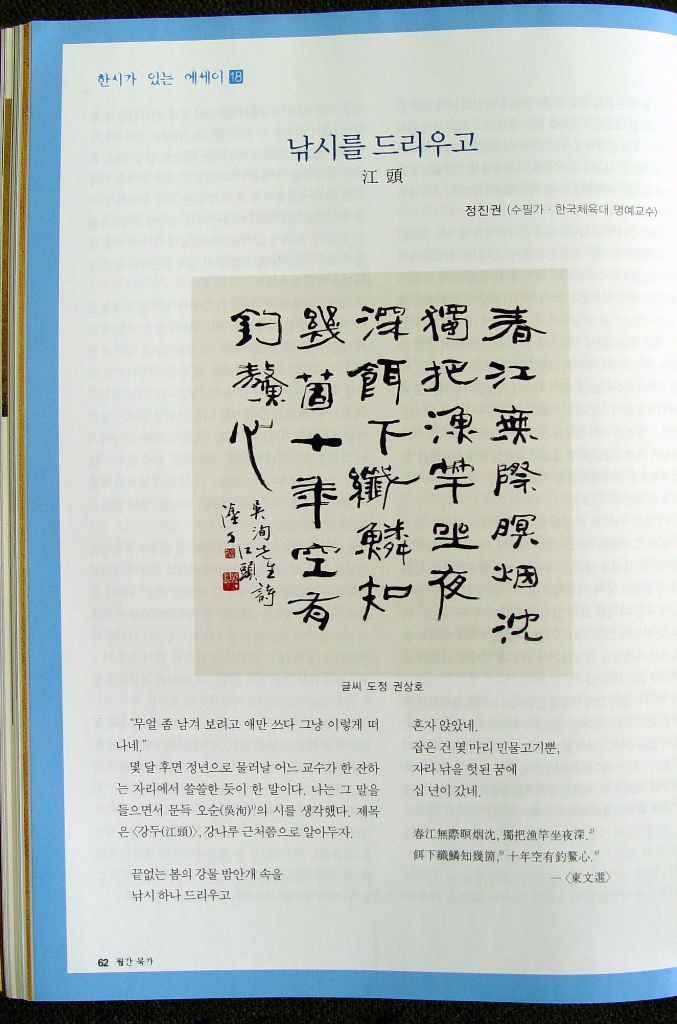 한시가 있는 에세이 18
낚시를 드리우고
江頭
정진권 (수필가 · 한국체육대 명예교수)
春江無際暝烟沈
獨把漁竿坐夜
深餌下纖鱗知
幾箇十年空有
釣鰲心
吳洵先生詩
江頭
글씨 도정 권상호
“무얼 좀 남겨 보려고 애만 쓰다 그냥 이렇게 떠
나네.”
몇 달 후면 정년으로 물러날 어느 교수가 한 잔하
는 자리에서 쓸쓸한 듯이 한 말이다. 나는 그 말을
들으면서 문득 오순(吳洵)1)의 시를 생각했다. 제목
은 〈강두(江頭)〉, 강나루 근처쯤으로 알아두자.
끝없는 봄의 강물 밤안개 속을
낚시 하나 드리우고
혼자 앉았네.
잡은 건 몇 마리 민물고기뿐,
자라 낚을 헛된 꿈에
십 년이 갔네.
春江無際暝烟沈, 獨把漁竿坐夜深.2)
餌下纖鱗知幾箇,3) 十年空有釣鰲心.4)
─〈東文選〉
62 월간 묵가